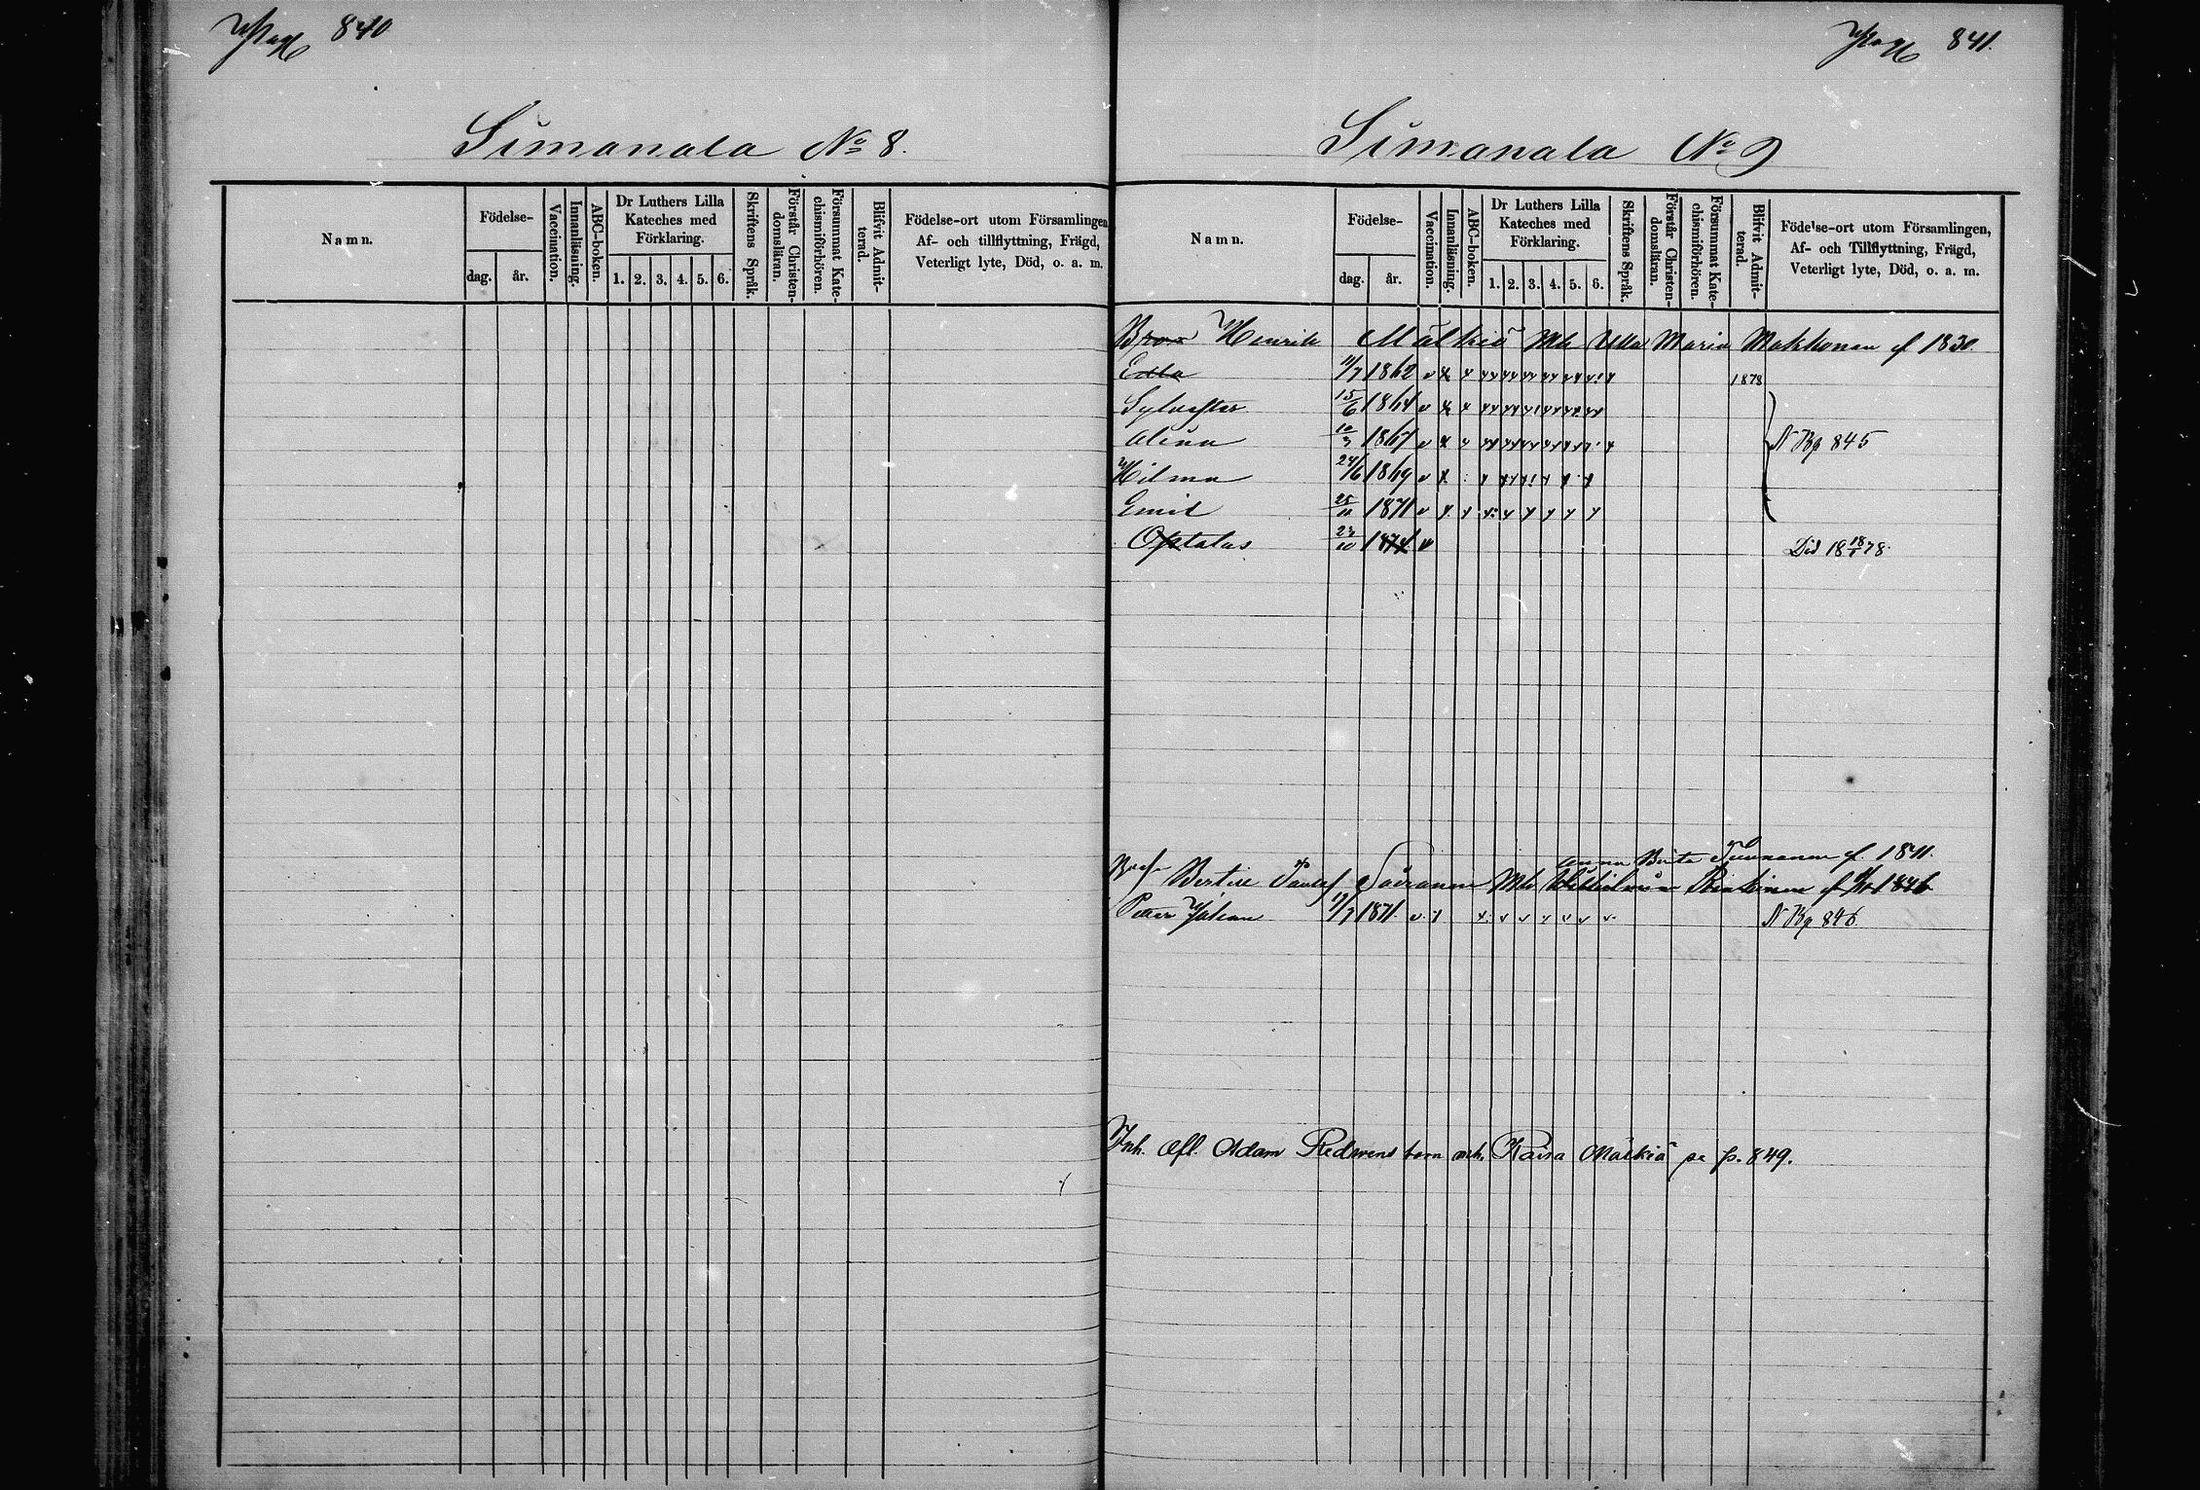 840
Simanala No 8.
Namn.
Födelse-
dag.
år.
Vaccination.
Innanläsning.
ABC-boken.
Dr Luthers Lilla
Kateches med
Förklaring.
1. 2. 3. 4. 5. 6.
Skriftens Språk.
Förstår Christen-
domsläran.
Försummat Kate-
chismiförhören.
Blifvit Admit-
terad.
Födelse-ort utom Församlingen
Af- och tillflyttning, Frägd,
Veterligt lyte, Död, o. a. m.
841.
Simanala No 9
Namn.
Födelse-
dag.
år.
Vaccination.
Innanläsning.
ABC-boken.
Dr Luthers Lilla
Kateches med
Förklaring.
1. 2. 3. 4. 5. 6.
Skriftens Språk.
Förstår Christen-
domsläran.
Försummat Kate-
chismiförhören.
Blifvit Admit-
terad.
Födelse-ort utom Församlingen,
Af- och Tillflyttning, Frägd,
Veterligt lyte, Död, o. a. m.
Henrik Mälkiä Mh Ulla Maria Makkonen f 1830
Edla 11/7 1862 1878
Sylvester 15/6 1864
Alina 10/3 1867 N Bg 845
Hilma 24/6 1869
Emil 25/11 1871
Optatus 23/10 1874 Död 18 18/1 78.
Anna Brita f. 1841.
Bertil Mh
Petter Johan 17/7 1871. N Bg 846
Inh. Afl. Adam barn och Kaisa Mälkiä se p. 849.